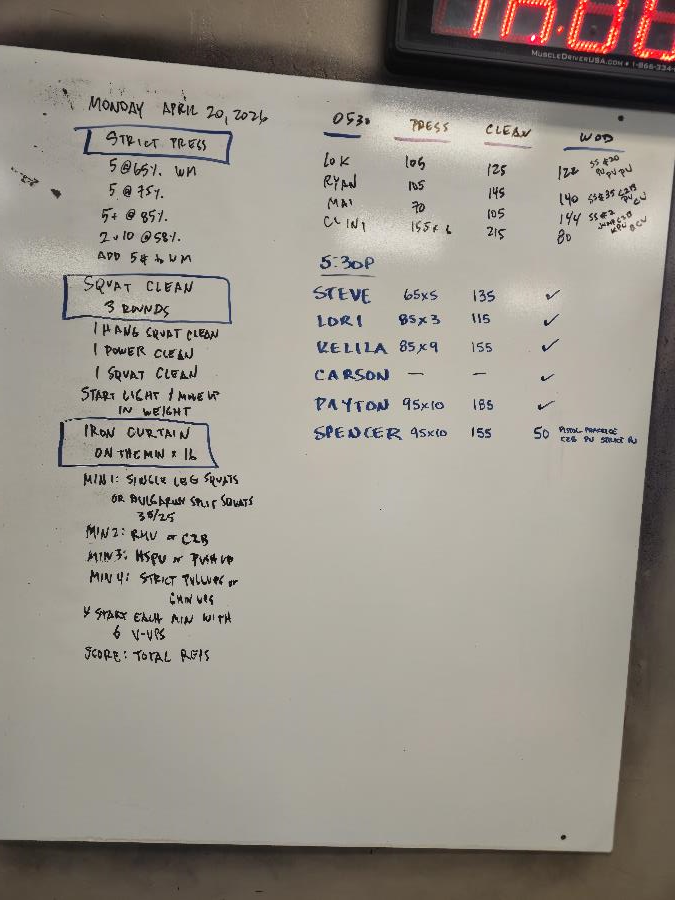 MUSCLEDRIVERUSA.COM • 1-866-334-
MONDAY APRIL 20, 2026
STRICT PRESS
5 @ 65% WM
5 @ 75%
5+ @ 85%
2x10 @ 58%
ADD 5# to WM
SQUAT CLEAN
3 ROUNDS
1 HANG SQUAT CLEAN
1 POWER CLEAN
1 SQUAT CLEAN
START LIGHT / MOVE UP
IN WEIGHT
IRON CURTAIN
ON THE MIN x 16
MIN 1: SINGLE LEG SQUATS
OR BULGARIAN SPLIT SQUATS
35/25
MIN 2: RMU or C2B
MIN 3: HSPU or PUSH UP
MIN 4: STRICT PULLUPS or
CHIN UPS
* START EACH MIN WITH
6 V-UPS
SCORE: TOTAL REPS
0530 PRESS CLEAN WOD
LOK 105 125 122 SS #20 PU PU PU
RYAN 105 145 140 SS #35 C2B PU CU
MAI 70 105 144 SS #2
CLINT 155x6 215 80
5:30P
STEVE 65x5 135 ✓
LORI 85x3 115 ✓
KELILA 85x9 155 ✓
CARSON — — ✓
PAYTON 95x10 185 ✓
SPENCER 95x10 155 50 PISTOL PRACTICE
C2B PU STRICT PU